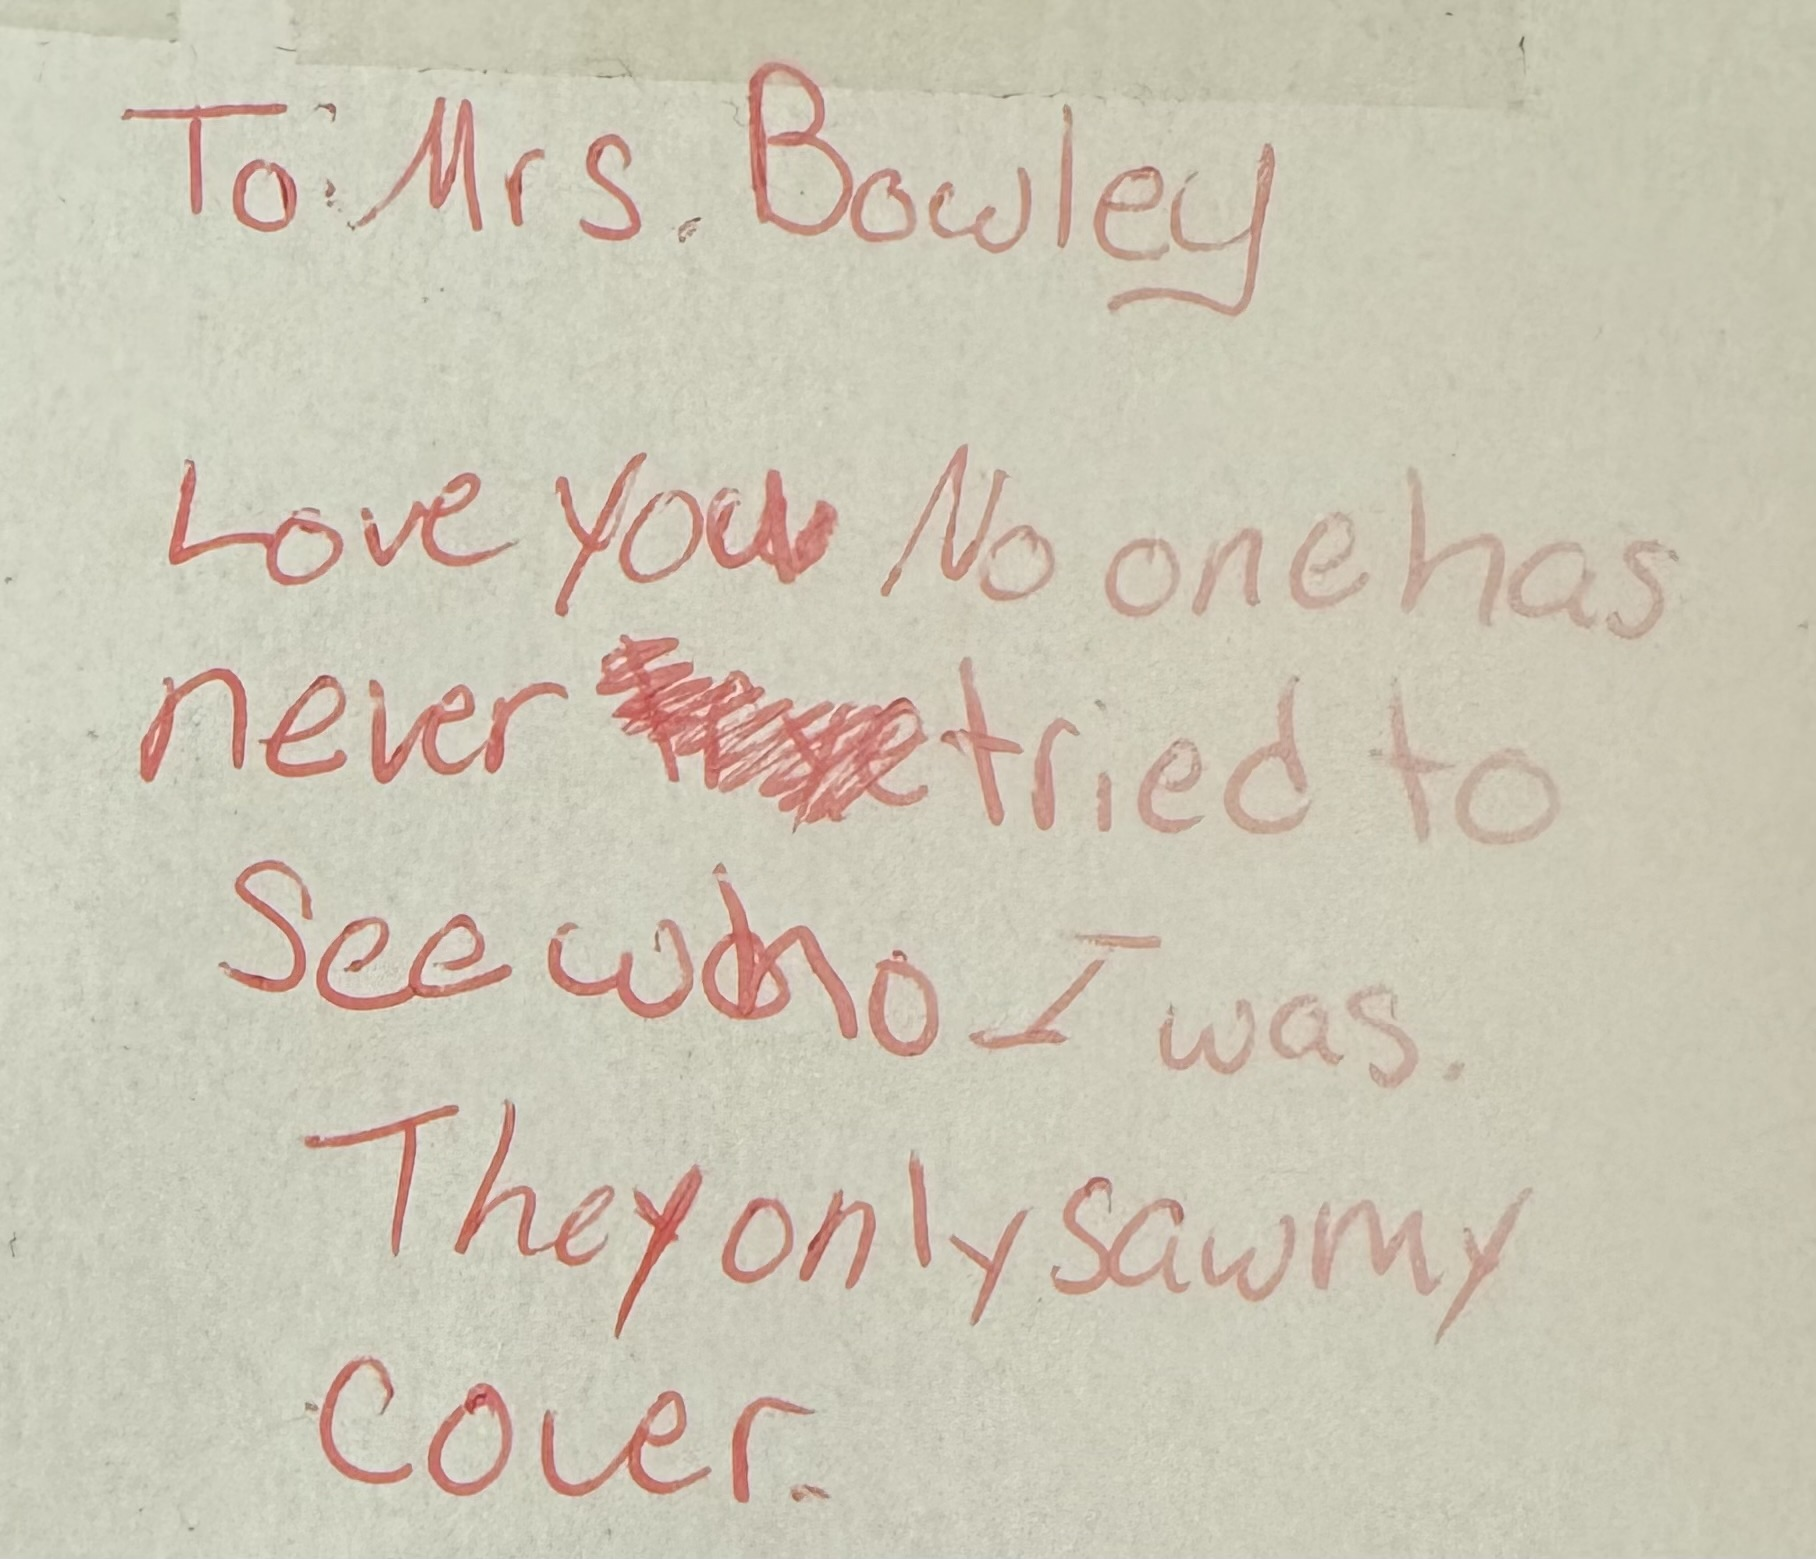 To: Mrs. Bowley
Love you No one has
never tried to
See who I was.
They only saw my
cover.